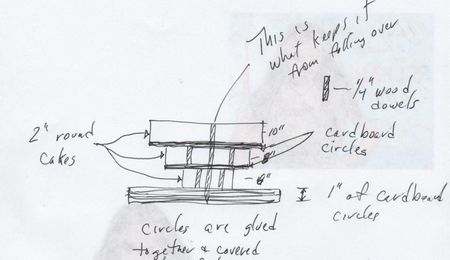 This is
what keeps it
from falling over
1/4" wood
dowels
2" round
cakes
10"
8"
6"
cardboard
circles
1" of cardboard
circles
circles are glued
together & covered